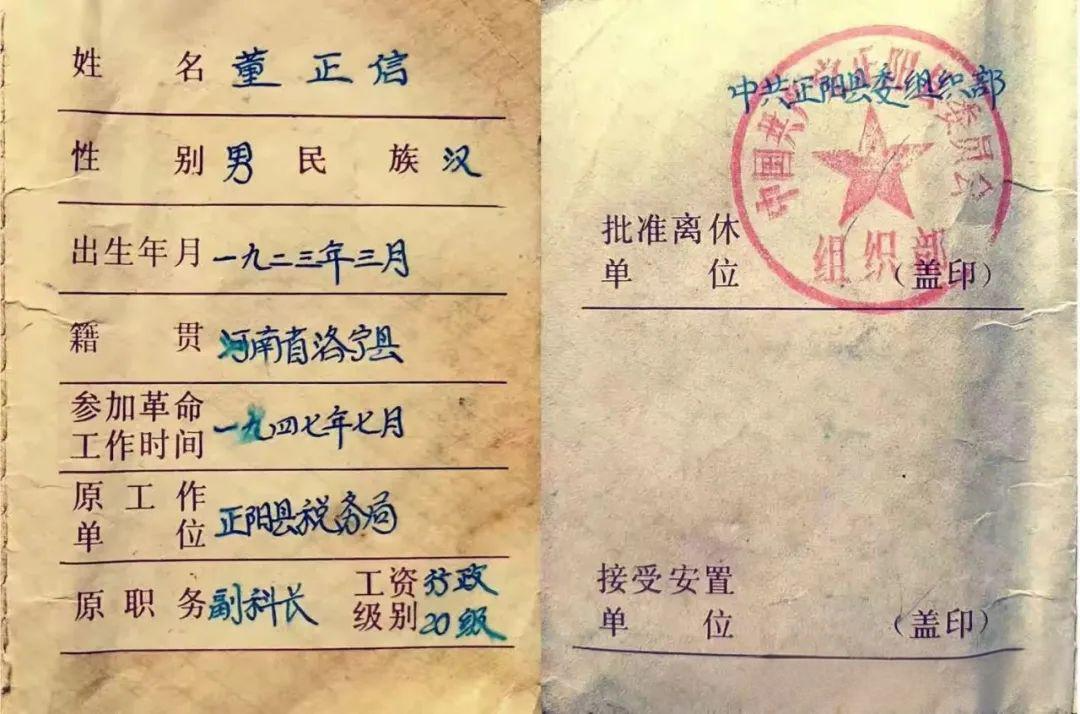 姓名 董正信
性别 男 民族 汉
出生年月 一九二三年三月
籍贯 河南省洛宁县
参加革命
工作时间 一九四七年七月
原工作
单位 正阳县税务局
原职务 副科长 工资级别 行政20级
中共正阳县委组织部
中国共产党正阳县委员会
组织部
批准离休
单位 (盖印)
接受安置
单位 (盖印)